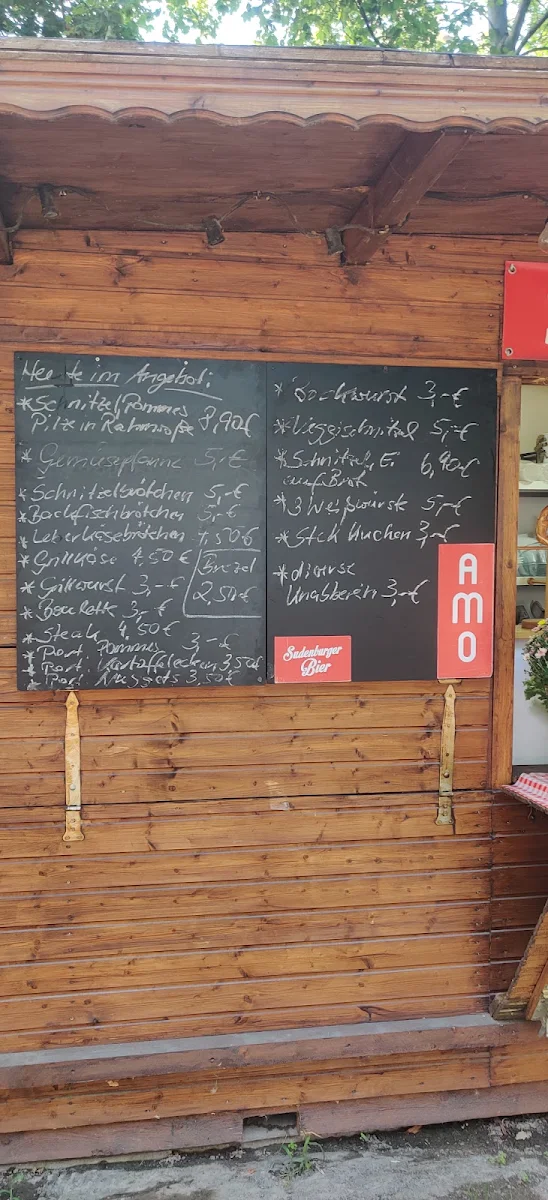 Heute im Angebot:
* Schnitzel, Pommes
Pilze in Rahmsoße 8,90€
* Gemüsepfanne 5,-€
* Schnitzelbrötchen 5,-€
* Backfischbrötchen 5,-€
* Leberkäsebrötchen 4,50€
* Grillkäse 4,50€
* Grillwurst 3,-€
* Boulette 3,-€
* Steak 4,50€
* Port. Pommes 3,-€
* Port. Kartoffelecken 3,50€
* Port. Nuggets 3,50€
Brezel
2,50€
* Bockwurst 3,-€
* Veggischnitzel 5,-€
* Schnitzel, Ei 6,90€
auf Brot
* 3 Weißwürste 5,-€
* Stck Kuchen 3,-€
* diverse
Knabberein 3,-€
Sudenburger
Bier
AMO